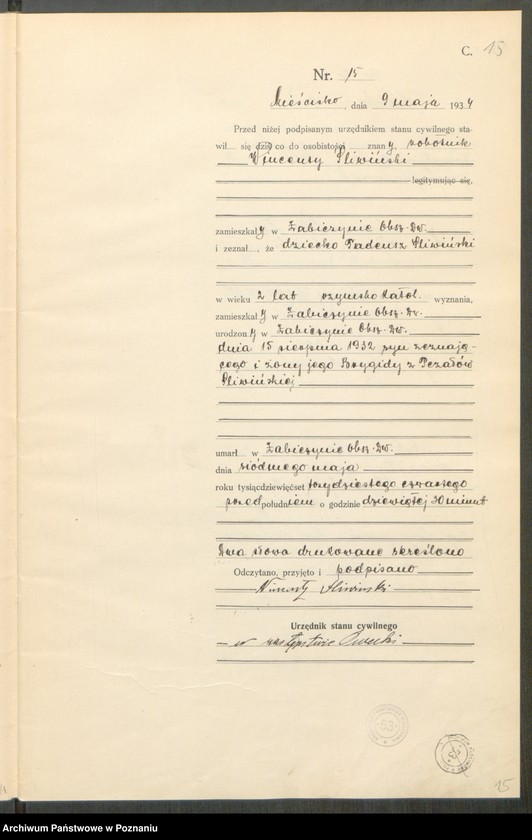 C. 15
Nr. 15
Mieścisko, dnia 9 maja 1934
Przed niżej podpisanym urzędnikiem stanu cywilnego sta-
wił się dziś co do osobistości znany, robotnik
Wincenty Śliwiński
legitymując się,
zamieszkały w Żabiczynie Obsz. Dw.
i zeznał, że dziecko Tadeusz Śliwiński
w wieku 2 lat rzymsko katol. wyznania,
zamieszkały w Żabiczynie Obsz. Dw.
urodzony w Żabiczynie Obsz. Dw.
dnia 15 sierpnia 1932 syn zeznają-
cego i żony jego Brygidy z
Śliwińskiej
umarł w Żabiczynie Obsz. Dw.
dnia siódmego maja
roku tysiącdziewięćset trzydziestego czwartego
przed południem o godzinie dziewiątej 30 minut
Dwa słowa drukowane skreślono
Odczytano, przyjęto i podpisano
Wincenty Śliwiński
Urzędnik stanu cywilnego
w zastępstwie
63
15
Archiwum Państwowe w Poznaniu